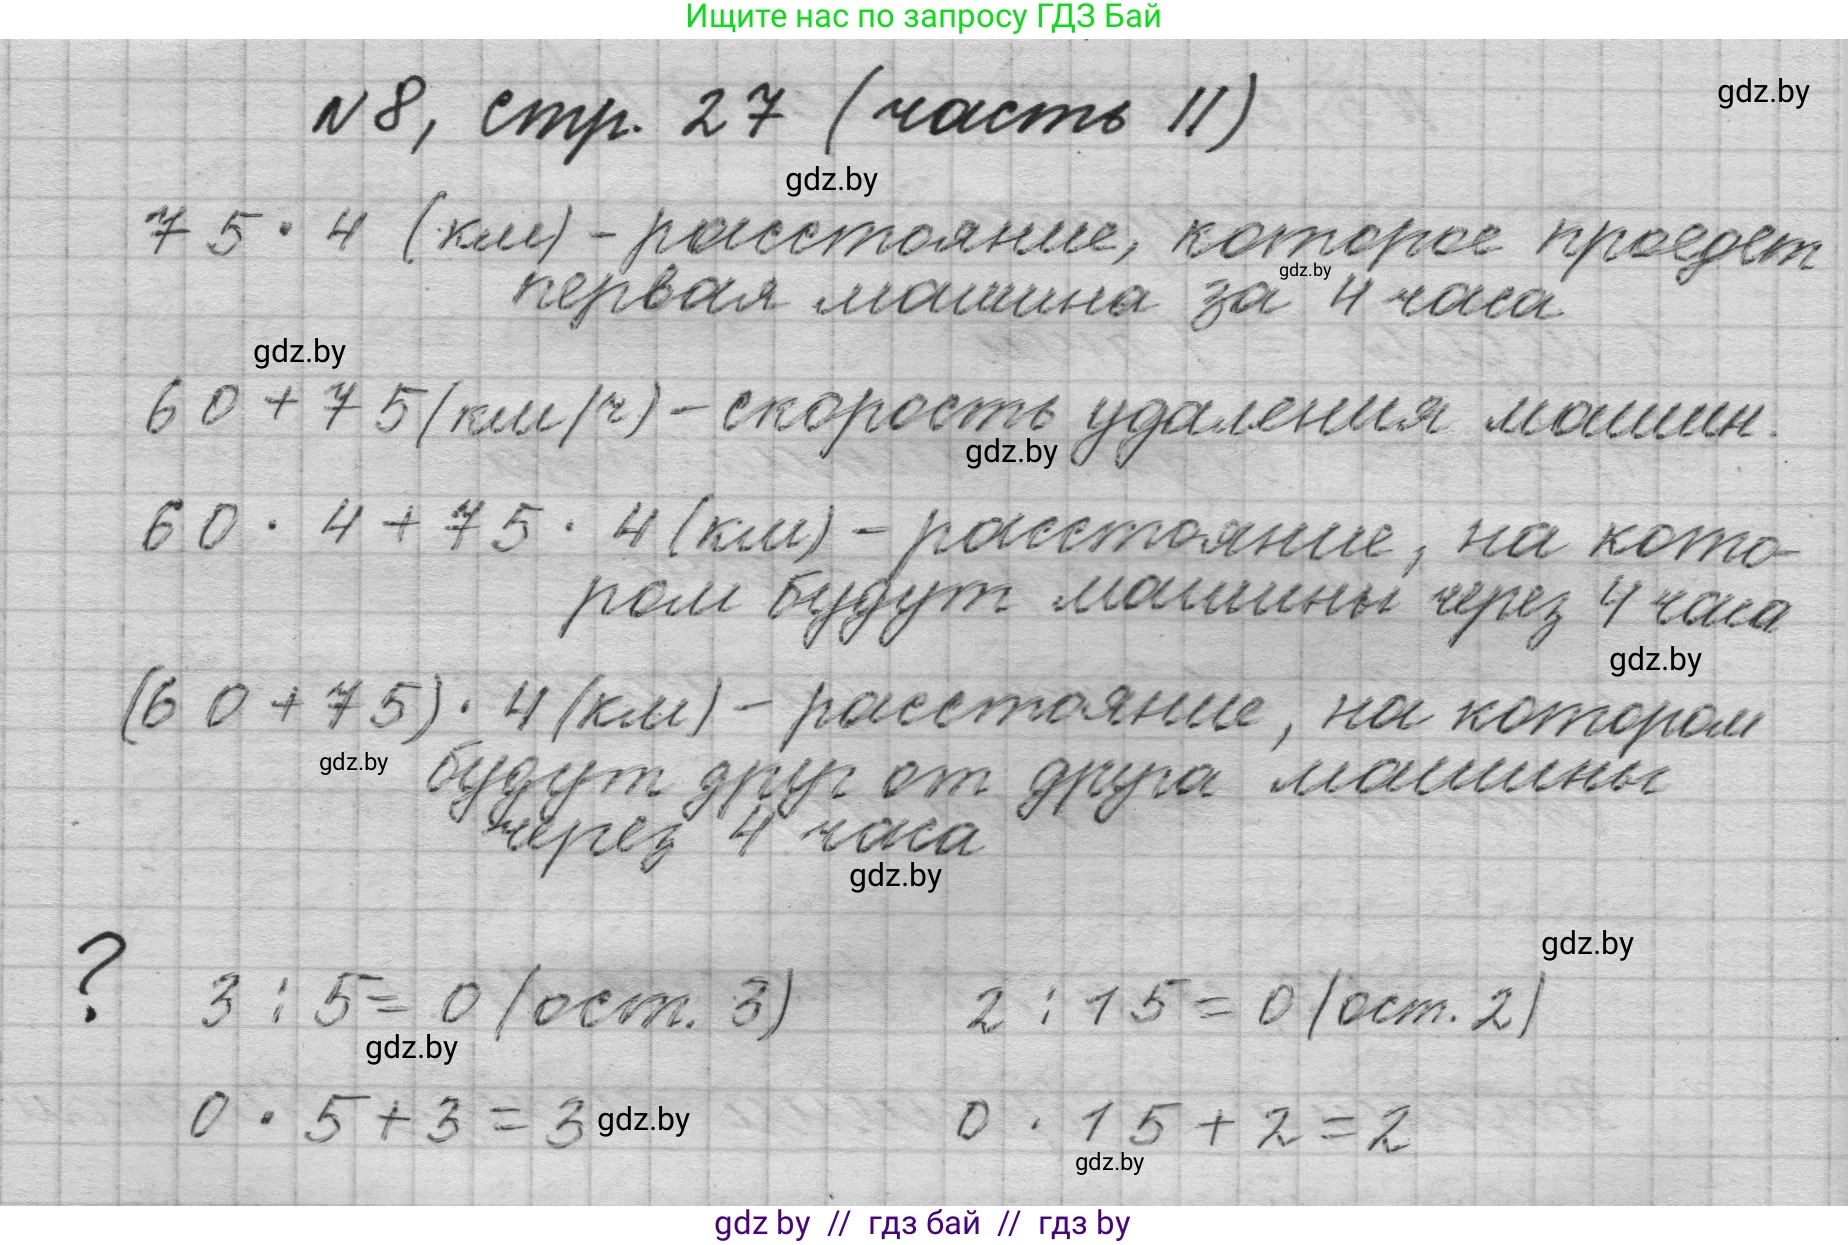 Ищите нас по запросу ГДЗ Бай
gdz.by
№8, стр. 27 (часть II)
gdz.by
75 · 4 (км) - расстояние, которое проедет
gdz.by
первая машина за 4 часа
gdz.by
60 + 75 (км/ч) - скорость удаления машин.
gdz.by
60 · 4 + 75 · 4 (км) - расстояние, на кото-
ром будут машины через 4 часа
gdz.by
(60 + 75) · 4 (км) - расстояние, на котором
gdz.by
будут друг от друга машины
через 4 часа
gdz.by
gdz.by
? 3 : 5 = 0 (ост. 3) 2 : 15 = 0 (ост. 2)
gdz.by
0 · 5 + 3 = 3 gdz.by 0 · 15 + 2 = 2
gdz.by
gdz by // гдз бай // гдз by